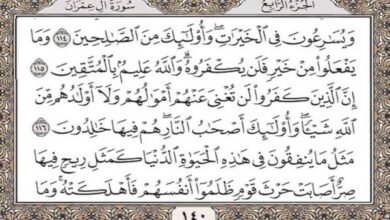 الجُزْءُ الرَّابِعُ سُورَةُ آلِ عِمْرَان
وَيُسَٰرِعُونَ فِى ٱلْخَيْرَٰتِۖ وَأُوْلَٰٓئِكَ مِنَ ٱلصَّٰلِحِينَ ١١٤ وَمَا
يَفْعَلُوا۟ مِنْ خَيْرٍ فَلَن يُكْفَرُوهُۗ وَٱللَّهُ عَلِيمُۢ بِٱلْمُتَّقِينَ ١١٥
إِنَّ ٱلَّذِينَ كَفَرُوا۟ لَن تُغْنِىَ عَنْهُمْ أَمْوَٰلُهُمْ وَلَآ أَوْلَٰدُهُم مِّنَ
ٱللَّهِ شَيْـًٔاۖ وَأُوْلَٰٓئِكَ أَصْحَٰبُ ٱلنَّارِۖ هُمْ فِيهَا خَٰلِدُونَ ١١٦
مَثَلُ مَا يُنفِقُونَ فِى هَٰذِهِ ٱلْحَيَوٰةِ ٱلدُّنْيَا كَمَثَلِ رِيحٍ فِيهَا
صِرٌّ أَصَابَتْ حَرْثَ قَوْمٍ ظَلَمُوٓا۟ أَنفُسَهُمْ فَأَهْلَكَتْهُۚ وَمَا
١٤٠